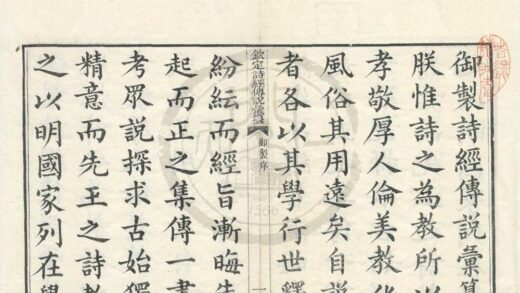 御製詩經傳說彙纂
朕惟詩之為教所以
孝敬厚人倫美教化
風俗其用遠矣自說
者各以其學行世釋
欽定詩經傳說彙纂 御製序 一
紛紜而經旨漸晦
起而正之集傳一書
考眾說探求古始獨
精意而先王之詩教
之以明國家列在學